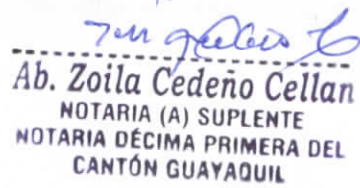 Ab. Zoila Cedeño Cellan
NOTARIA (A) SUPLENTE
NOTARIA DÉCIMA PRIMERA DEL
CANTÓN GUAYAQUIL